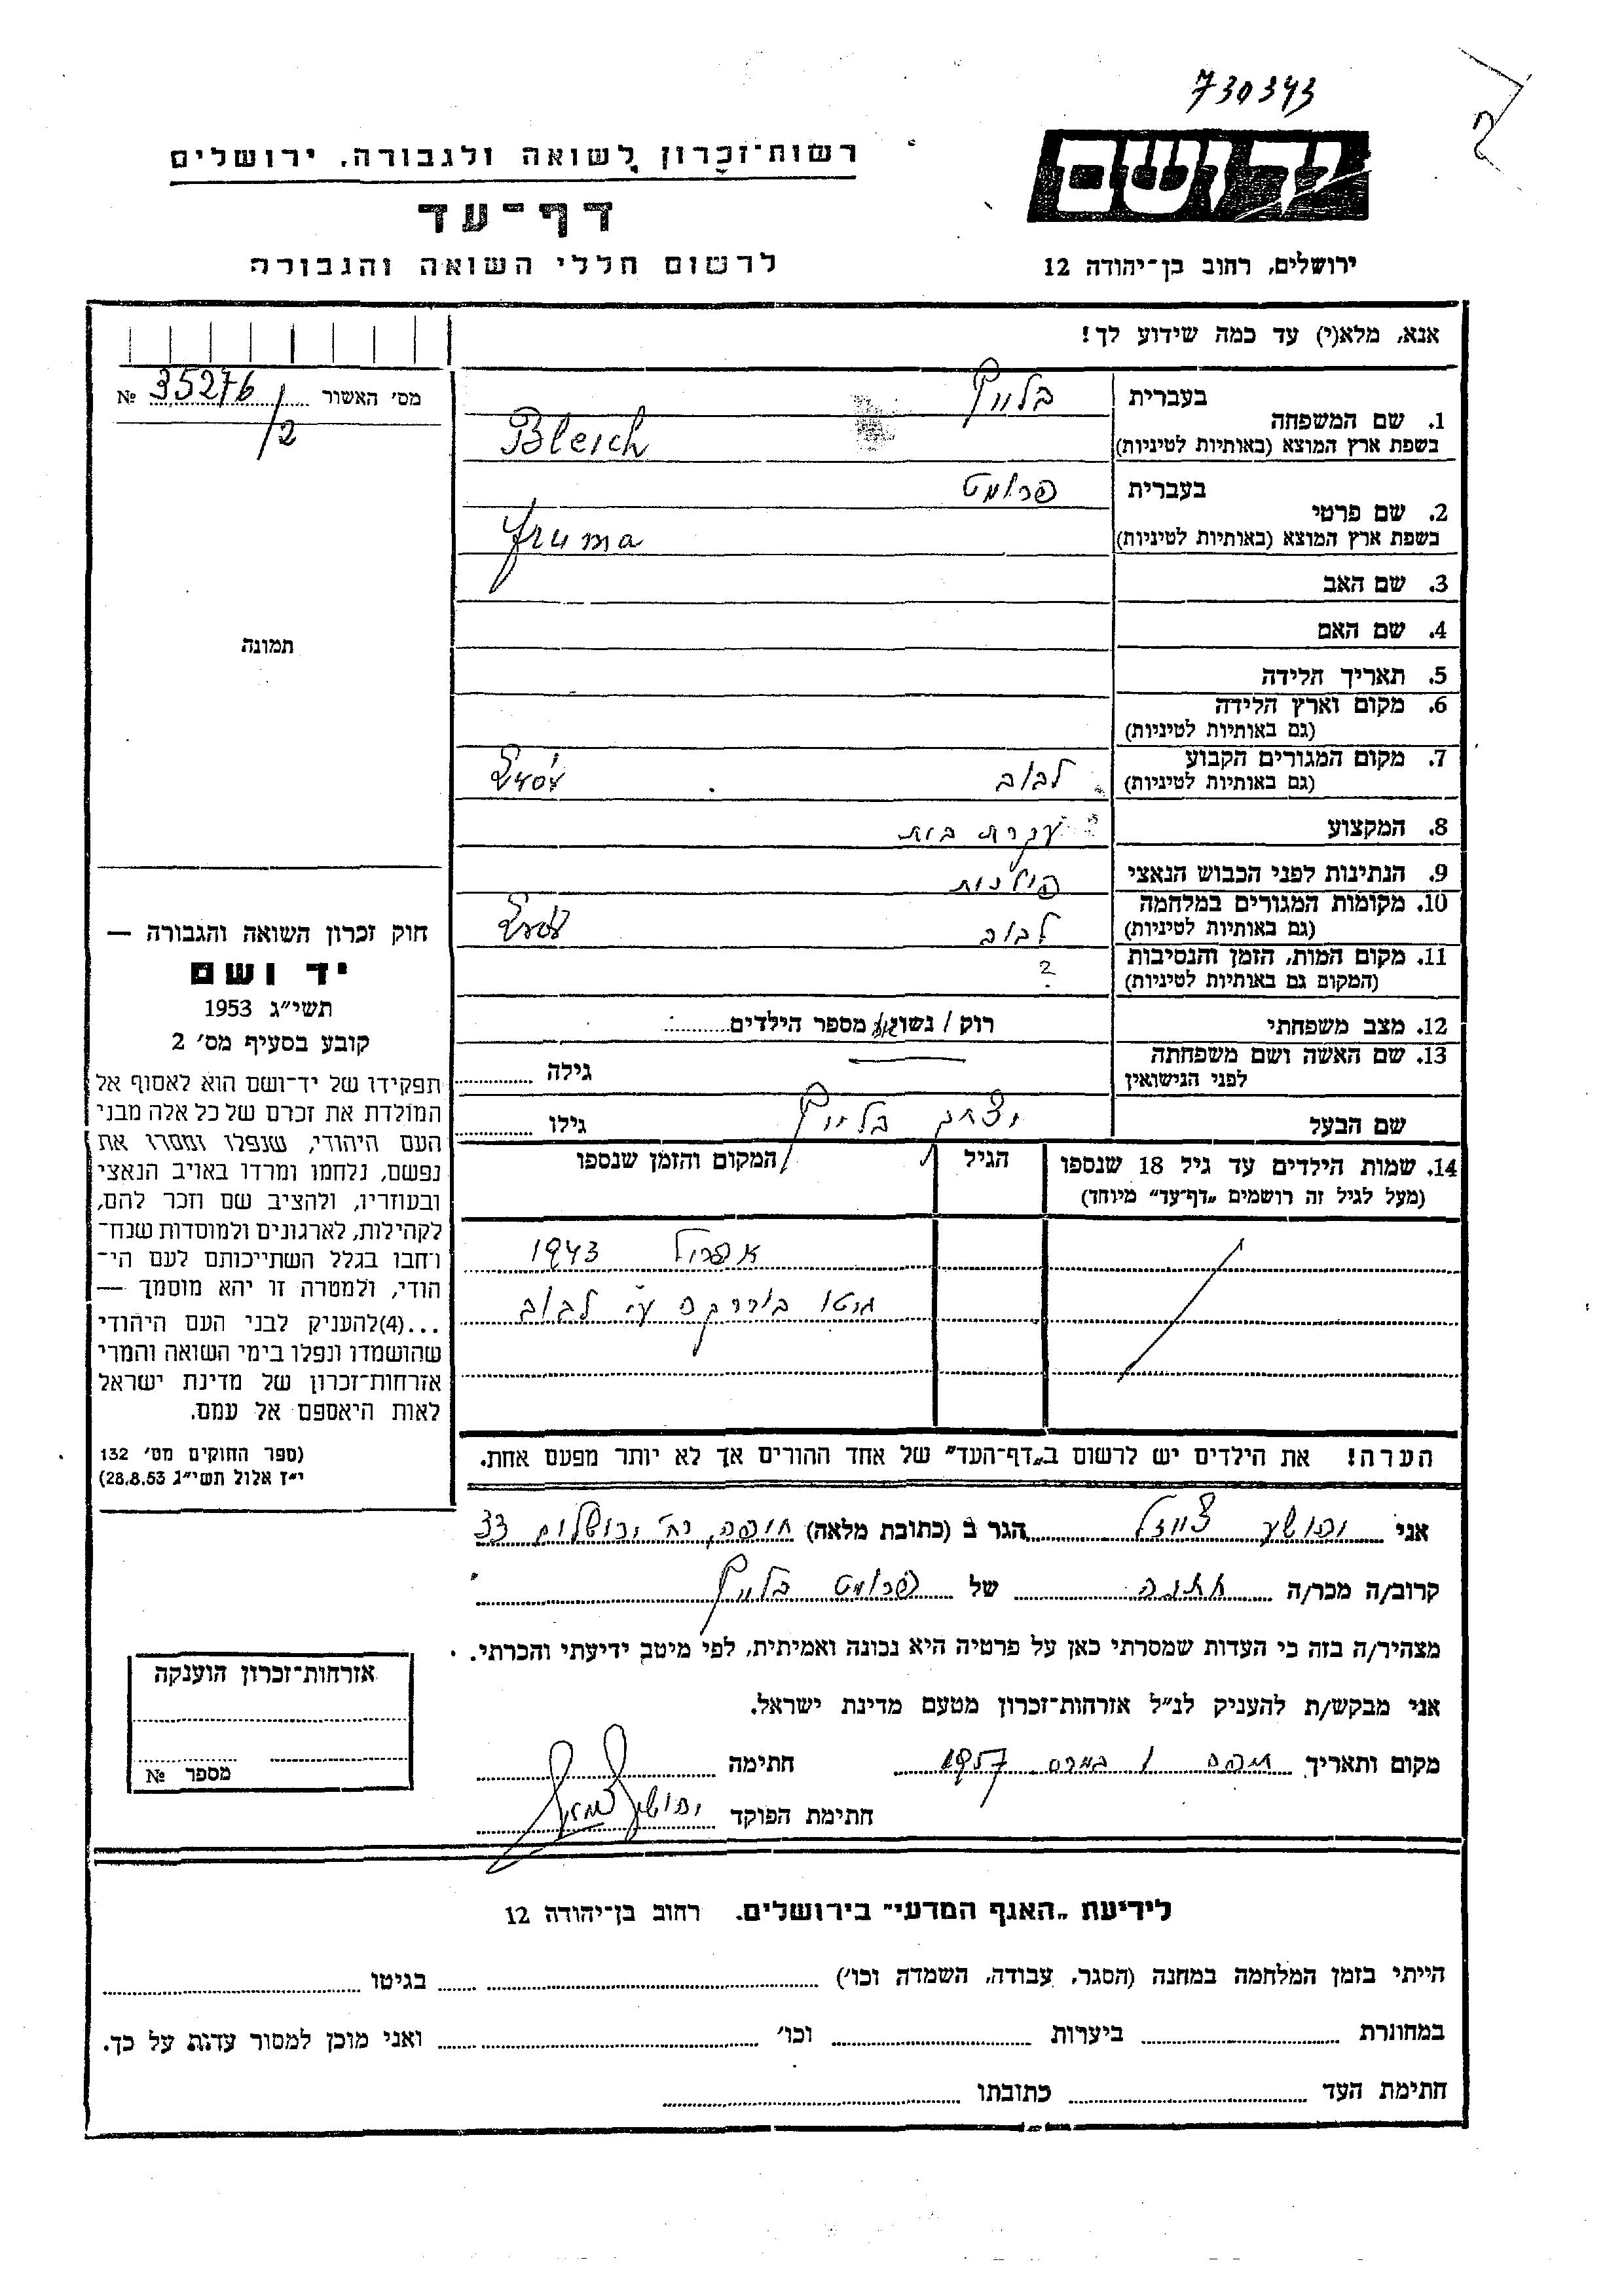 730343
יד ושם
רשות־זכרון לשואה ולגבורה, ירושלים
דף־עד
לרשום חללי השואה והגבורה
ירושלים, רחוב בן־יהודה 12
אנא, מלא(י) עד כמה שידוע לך!
מס׳ האשור № 35276/2
תמונה
1. שם המשפחה
בעברית בלייך
בשפת ארץ המוצא (באותיות לטיניות) Bleich
2. שם פרטי
בעברית פרומט
בשפת ארץ המוצא (באותיות לטיניות) fruma
3. שם האב
4. שם האם
5. תאריך הלידה
6. מקום וארץ הלידה
(גם באותיות לטיניות)
7. מקום המגורים הקבוע לבוב
(גם באותיות לטיניות)
8. המקצוע עקרת בית
9. הנתינות לפני הכבוש הנאצי פולנית
10. מקומות המגורים במלחמה לבוב
(גם באותיות לטיניות)
11. מקום המות, הזמן והנסיבות ?
(המקום גם באותיות לטיניות)
12. מצב משפחתי רוק / נשוי מספר הילדים
13. שם האשה ושם משפחתה
לפני הנישואין גילה
שם הבעל יצחק בלייך גילו
14. שמות הילדים עד גיל 18 שנספו הגיל המקום והזמן שנספו
(מעל לגיל זה רושמים „דף־עד״ מיוחד)
אפריל 1943
גיטו לבוב
הערה! את הילדים יש לרשום ב„דף־העד״ של אחד ההורים אך לא יותר מפעם אחת.
חוק זכרון השואה והגבורה —
יד ושם
תשי״ג 1953
קובע בסעיף מס׳ 2
תפקידו של יד־ושם הוא לאסוף אל
המולדת את זכרם של כל אלה מבני
העם היהודי, שנפלו ומסרו את
נפשם, נלחמו ומרדו באויב הנאצי
ובעוזריו, ולהציב שם וזכר להם,
לקהילות, לארגונים ולמוסדות שנח־
רחבו בגלל השתייכותם לעם הי־
הודי, ולמטרה זו יהא מוסמך —
...(4)להעניק לבני העם היהודי
שהושמדו ונפלו בימי השואה והמרי
אזרחות־זכרון של מדינת ישראל
לאות היאספם אל עמם.
(ספר החוקים מס׳ 132
י״ז אלול תשי״ג 28.8.53)
אני יהושע הגר ב (כתובת מלאה) חיפה, רח׳ ירושלים 33
קרוב/ה מכר/ה חתנה של פרומט בלייך
מצהיר/ה בזה כי העדות שמסרתי כאן על פרטיה היא נכונה ואמיתית, לפי מיטב ידיעתי והכרתי.
אני מבקש/ת להעניק לנ״ל אזרחות־זכרון מטעם מדינת ישראל.
מקום ותאריך חיפה 1 במרס 1957 חתימה
חתימת הפוקד
אזרחות־זכרון הוענקה
מספר №
לידיעת „האגף המדעי״ בירושלים. רחוב בן־יהודה 12
הייתי בזמן המלחמה במחנה (הסגר, עבודה, השמדה וכו׳) בגיטו
במחתרת ביערות וכו׳ ואני מוכן למסור עדות על כך.
חתימת העד כתובתו